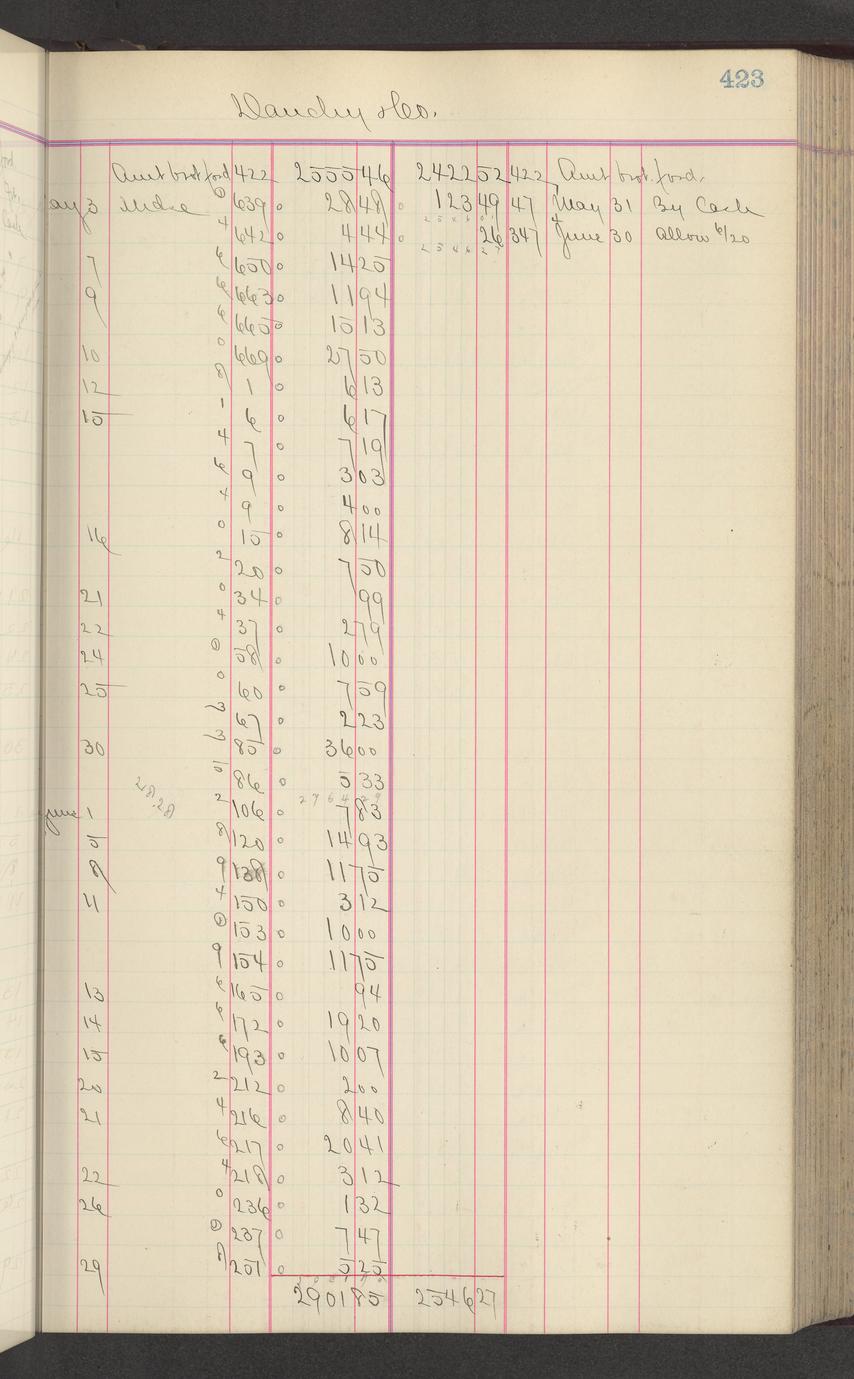 423
Co.
Amt brot ford 422 2555 46 2422 52 422 Amt brot. ford.
3 Mdse 639 28 48 123 49 47 May 31 By Cash
4 642 4 44 26 347 June 30 allow 6/20
7 6 650 14 25
9 6 663 11 94
6 665 15 13
10 0 669 27 50
12 8 1 6 13
15 1 6 6 17
4 7 7 19
6 9 3 03
4 9 4 00
16 0 15 8 14
2 20 7 50
21 0 34 99
22 4 37 2 79
24 58 10 00
25 0 60 7 59
3 67 2 23
30 3 85 36 00
5 86 5 33
28.28
June 1 2 106 7 83
5 8 120 14 93
8 9 138 11 75
11 4 150 3 12
153 10 00
9 154 11 75
13 6 165 94
14 6 172 19 20
15 6 193 10 07
20 2 212 2 00
21 4 216 8 40
6 217 20 41
22 4 218 3 12
26 0 236 1 32
237 7 47
29 8 251 5 25
2901 85 2546 27